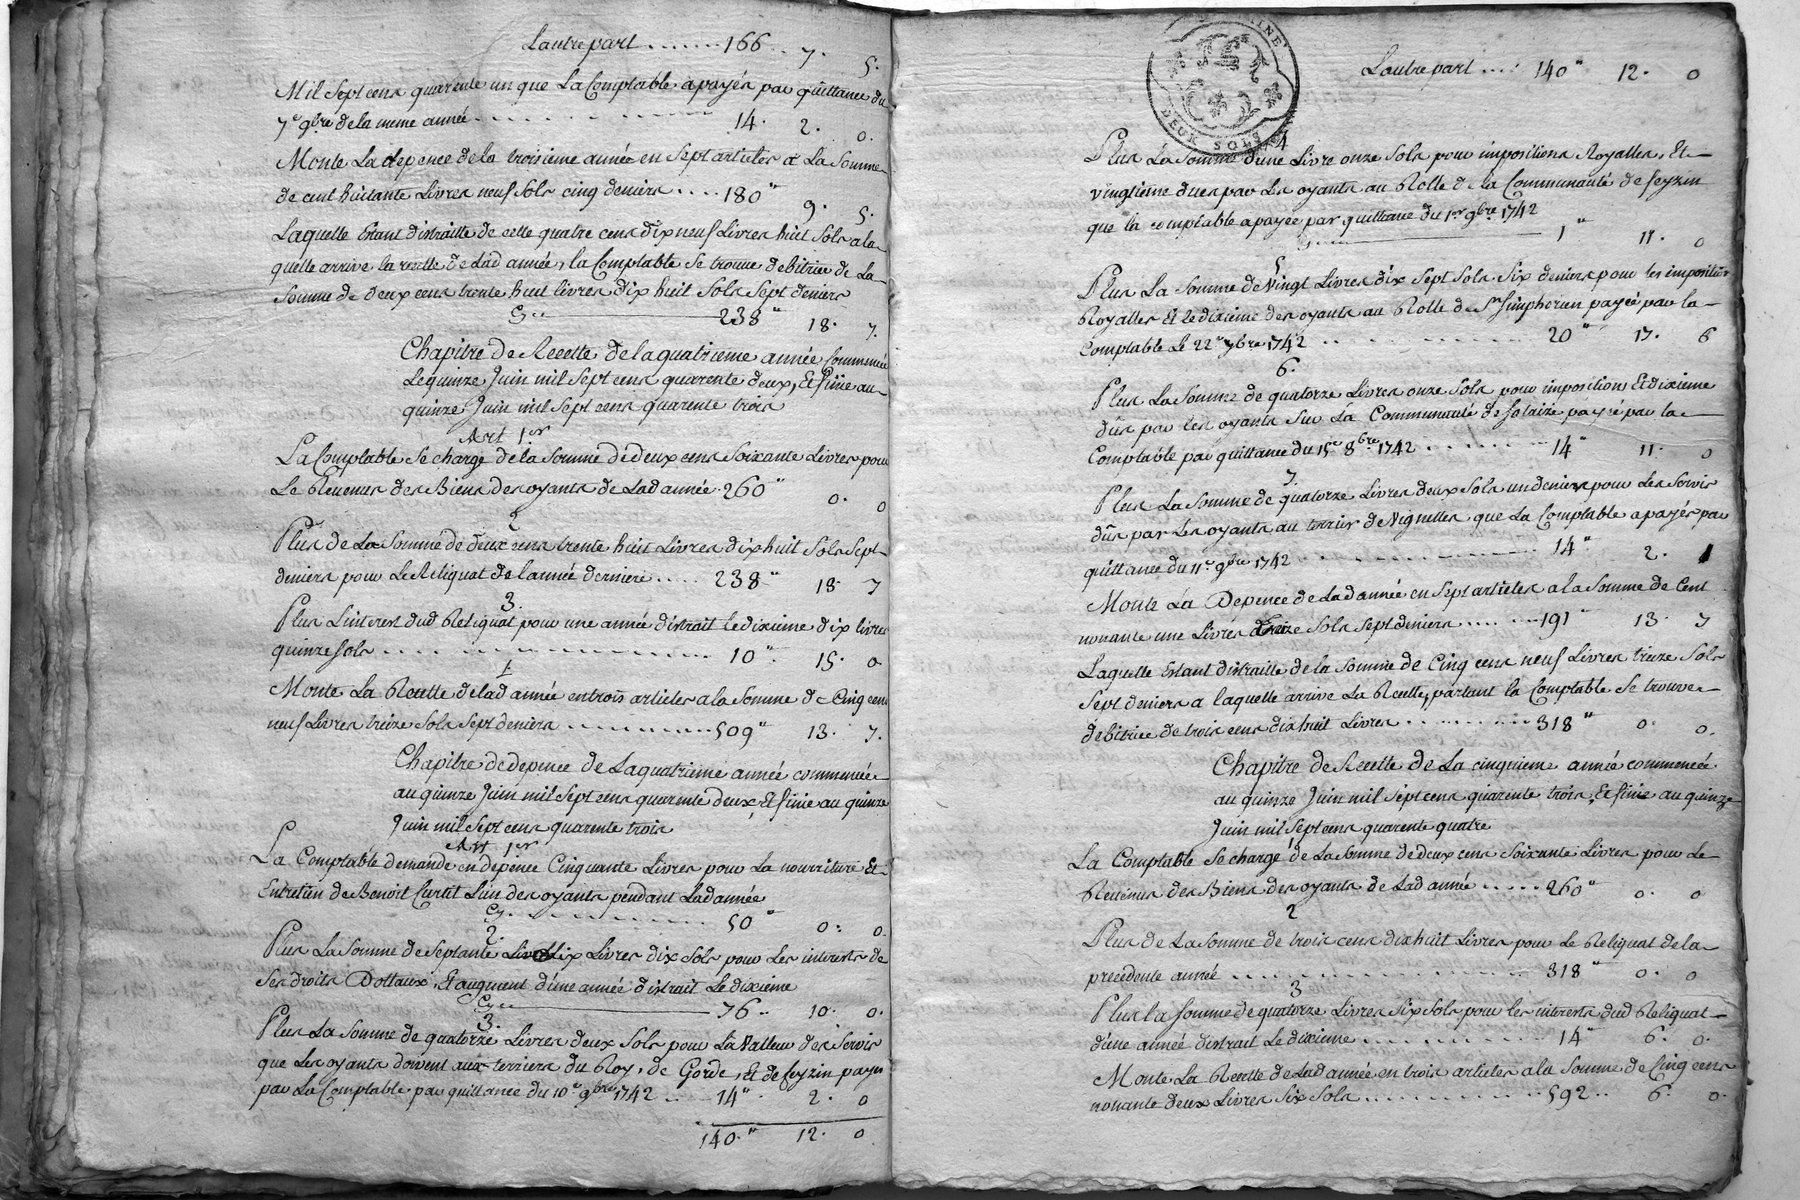 Lautre part ....... 166 .. 7. 5.
Mil Sept cens quarente un que La Comptable a payés par quittance du
7e 9bre de la meme année . . . . . . . . 14. 2. 0.
Monte La depence de la troisieme année en Sept articles a La Somme
de cent huitante Livres neuf Sols cinq deniers .... 180" 9. 5.
Laquelle Etant distraitte de cette quatre cens dix neuf Livres huit Sols a la
quelle arrive la recette de Lad année, la Comptable Se trouve debitrice de La
Somme de deux cens trente huit livres dix huit Sols Sept deniers
Cy .. 238" 18. 7.
Chapitre de Recette de la quatrieme année Commencée
Le quinze Juin mil Sept cens quarente deux, Et finie au
quinze Juin mil Sept cens quarente trois
Art 1er
La Comptable Se charge de la Somme de deux cens Soixante Livres pour
Le Revenus des Biens des oyants de Lad année. 260" 0. 0
2
Plus de La Somme de deux cens trente huit Livres dix huit Sols Sept
deniers pour Le Reliquat de lannée derniere ..... 238" 18. 7
3.
Plus L'interest dud Reliquat pour une année distrait le dixieme dix livres
quinze Sols . . . . . . . . . . 10" 15. 0
Monte La Recette de lad année en trois articles a la Somme de Cinq cens
neuf Livres treize Sols Sept deniers ........... 509" 13. 7.
Chapitre de depence de La quatrieme année commencée
au quinze Juin mil Sept cens quarente deux, Et finie au quinze
Juin mil Sept cens quarente trois
Art 1er
La Comptable demande en depence Cinquante Livres pour La nourriture Et
Entretien de Benoit Curtil L'un des oyants pendant Lad année
Cy. . . . . . . . . . 50" 0. 0.
2.
Plus La Somme de Septante Six Livres dix Sols pour Les interests de
Ses droits Dottaux, Et augment d'une année distrait Le dixieme
Cy .. 76 .. 10. 0.
3.
Plus La Somme de quatorze Livres deux Sols pour La Valleur des Servis
que Les oyants doivent aux terriers du Roy, de Gorde, Et de feyzin payés
par La Comptable par quittance du 10e 9bre 1742 .... 14". 2. 0
140." 12. 0
Lautre part .... 140" 12. 0
DEUX SOLS
4
Plus La Somme d'une Livre onze Sols pour impositions Royalles, Et
vingtieme dues par Les oyants au Rolle de la Communauté de feyzin
que la comptable a payée par quittance du 1er 9bre 1742
1" 11. 0
5
Plus La Somme de Vingt Livres dix Sept Sols Six deniers pour les impositions
Royalles Et le dixieme des oyants au Rolle de St Simphorien payée par la
Comptable Le 22e 7bre 1742 . . . . . . . . 20" 17. 6
6.
Plus La Somme de quatorze Livres onze Sols pour impositions Et dixieme
dûs par les oyants Sur La Communauté de Solaize payée par la
Comptable par quittance du 15e 8bre 1742 ........ 14" 11. 0
7.
Plus La Somme de quatorze Livres deux Sols un denier pour Les Servis
dûs par Les oyants au terrier de Vignelles que La Comptable a payés par
quittance du 11e 9bre 1742 . . . . . . . . 14". 2. 1
Monte La Depence de Lad année en Sept articles a la Somme de Cent
nonante une Livres treize Sols Sept deniers ....... 191" 13. 7
Laquelle Etant distraitte de la Somme de Cinq cens neuf Livres treize Sols
Sept deniers a laquelle arrive La Recette, partant la Comptable Se trouve
debitrice de trois cens dix huit Livres ......... 318" 0. 0.
Chapitre de Recette de La cinquieme année commencée
au quinze Juin mil Sept cens quarente trois, Et finie au quinze
Juin mil Sept cens quarente quatre
1
La Comptable Se charge de La Somme de deux cens Soixante Livres pour Le
Revenus des Biens des oyants de Lad année ..... 260" 0. 0
2
Plus de La Somme de trois cens dix huit Livres pour Le Reliquat de la
precedente année . . . . . . . . . . . 318" 0. 0
3
Plus la Somme de quatorze Livres Six Sols pour les interests dud Reliquat
d'une année distrait Le dixieme ............ 14" 6. 0.
Monte La Recette de Lad année en trois articles a la Somme de Cinq cens
nonante deux Livres Six Sols ............. 592 .. 6. 0.